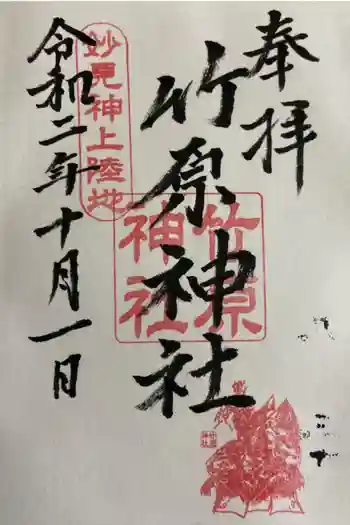 奉拝
竹原神社
竹原神社
妙見神上陸地
令和二年十月一日